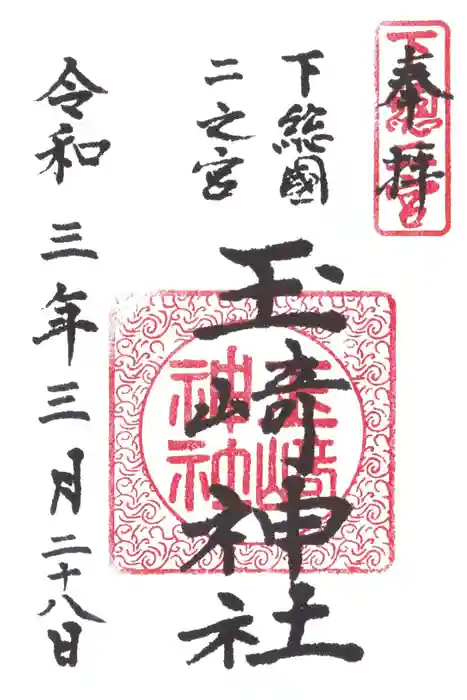 奉拝
下総二宮
下総國
二之宮
玉﨑神社
玉崎神社
令和三年三月二十八日